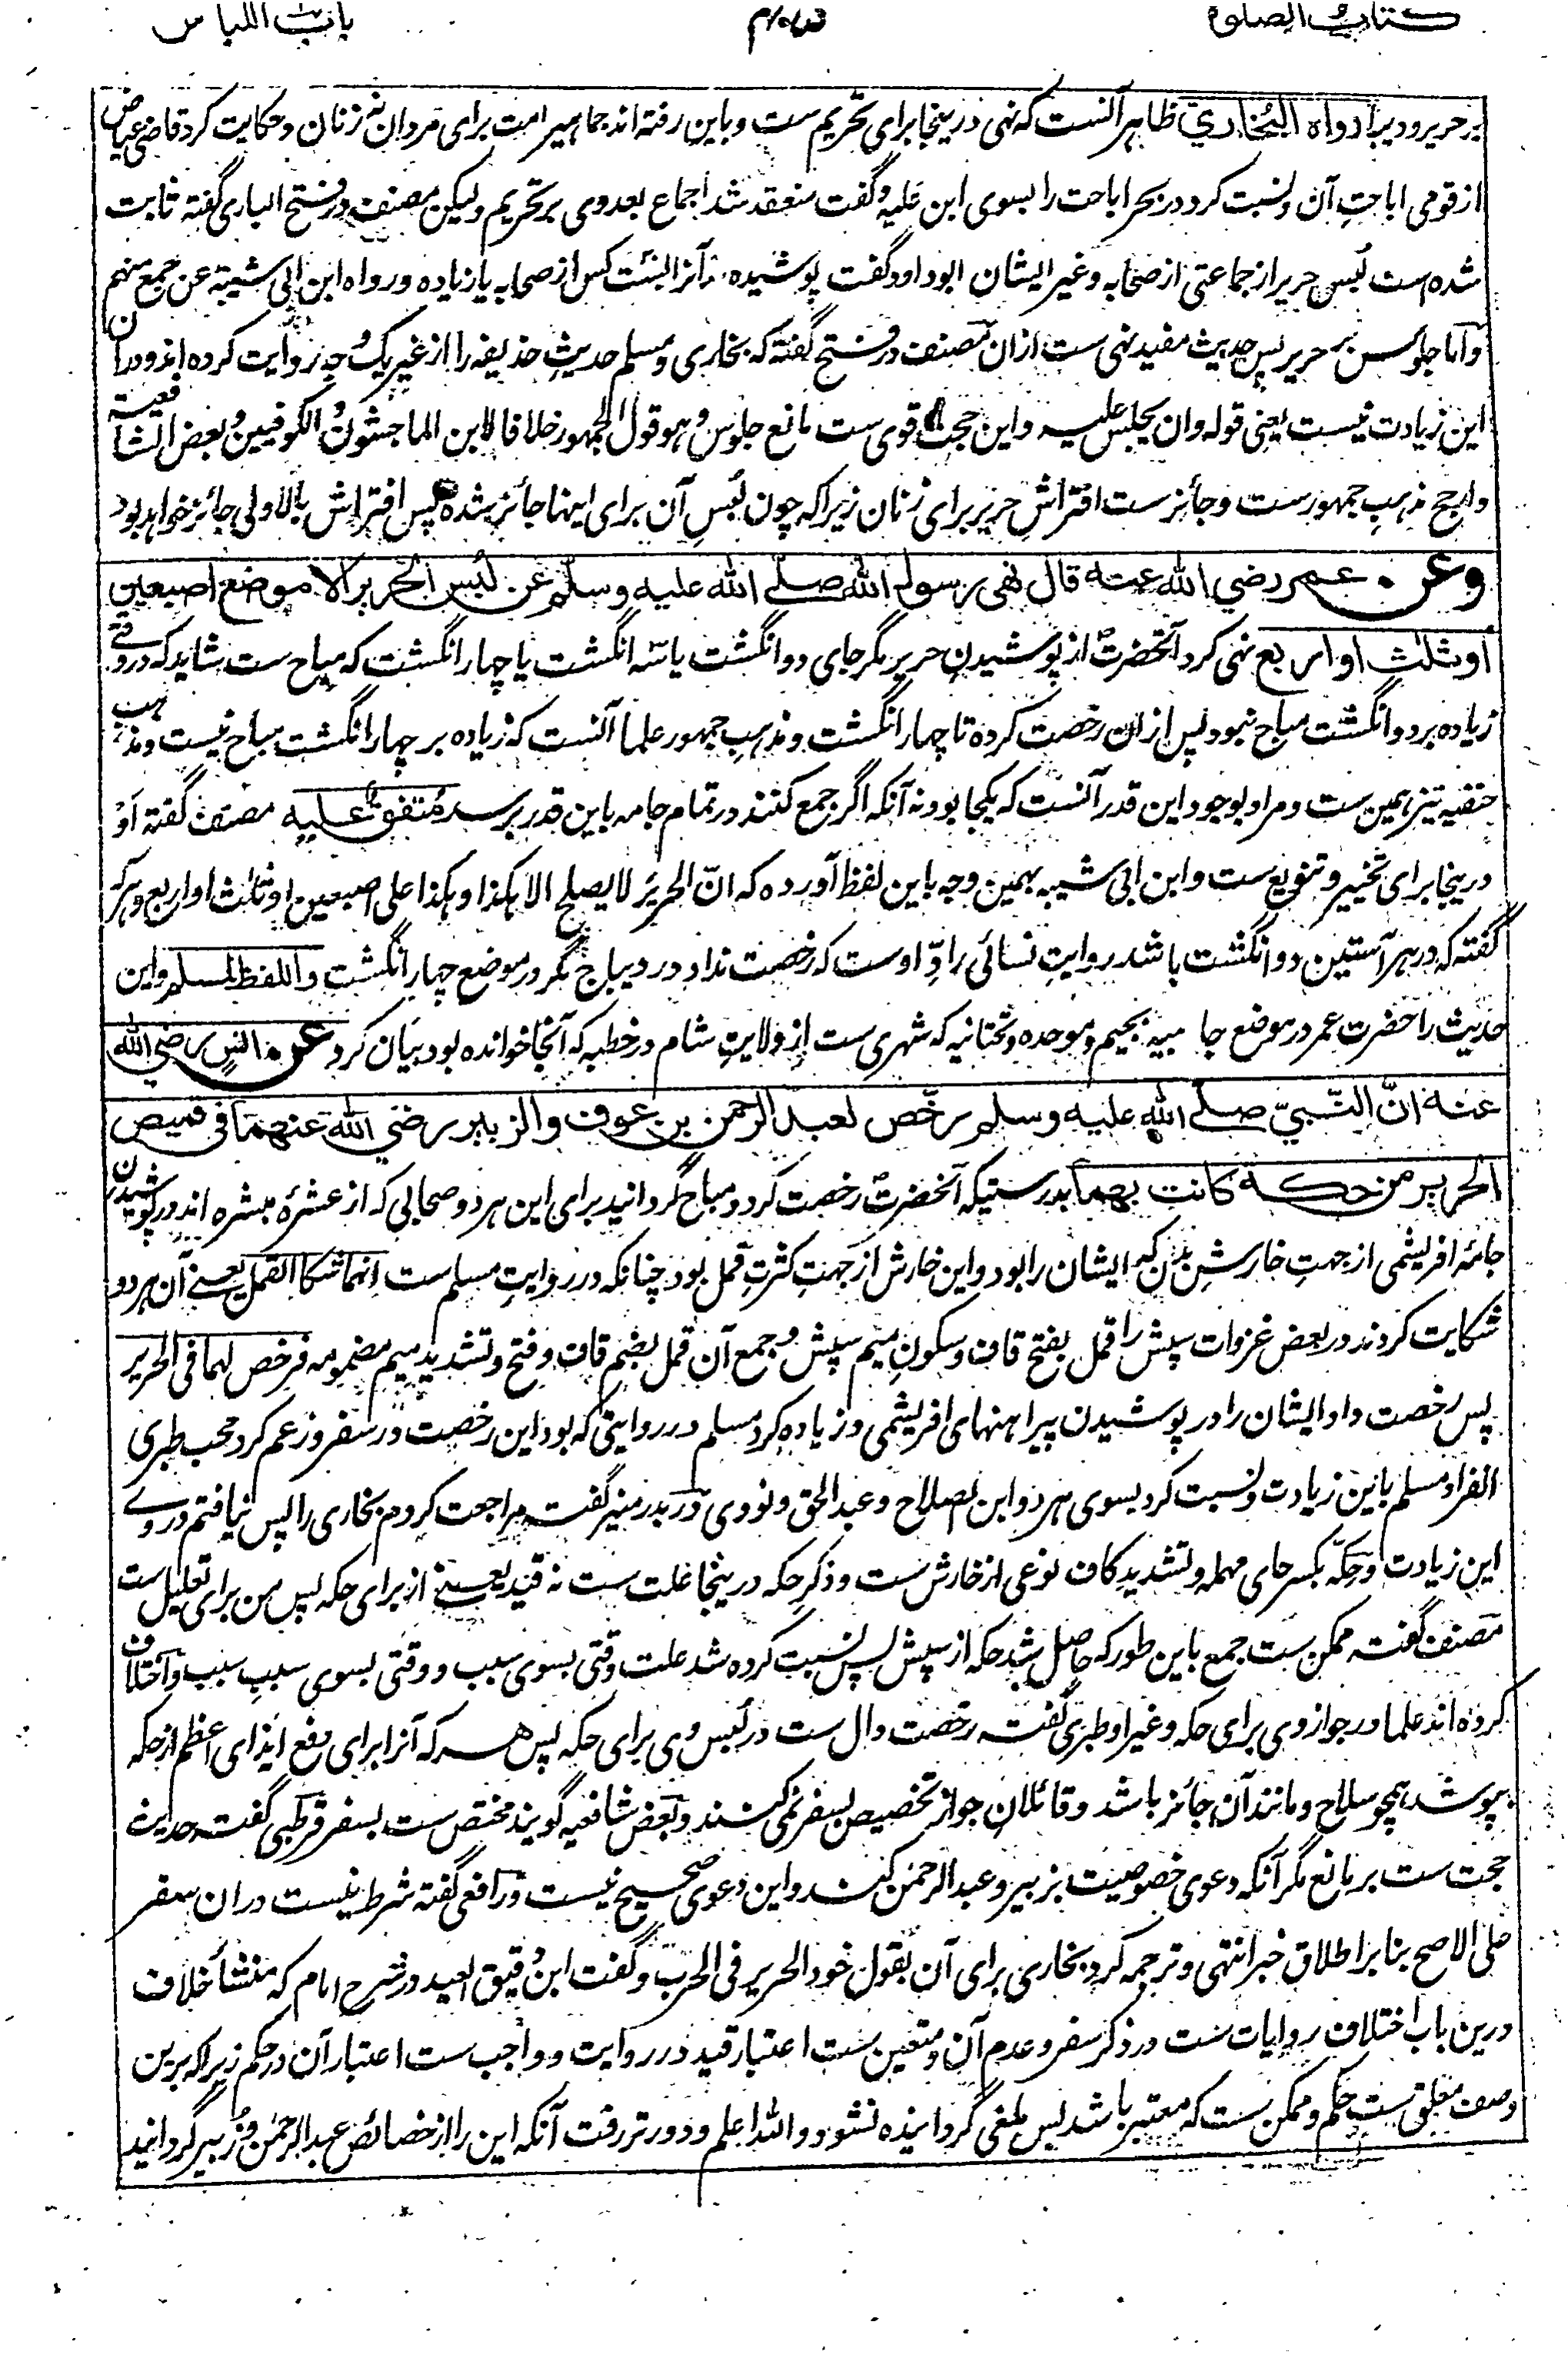 کتاب الصلوة
باب اللباس
بر حریر و دیبا رواه البخاري ظاهر آنست که نهی درینجا برای تحریم ست و باین رفته اند جماهیر امت برای مردان نه زنان و حکایت کرد قاضی عیاض
از قومی اباحتِ آن و نسبت کرد در بحر اباحت را بسوی ابن علیه و گفت منعقد شد اجماع بعد وی بر تحریم ولیکن مصنف در فتح الباری گفته ثابت
شده است لُبس حریر از جماعتی از صحابه و غیر ایشان ابوداود گفت پوشیده آنرا بست کس از صحابه یا زیاده و رواه ابن ابی شیبة عن جمع منهم
و اما جلوس بر حریر پس حدیث مفید نهی ست ازان مصنف در فتح گفته که بخاری و مسلم حدیثِ حذیفه را از غیر یک وجه روایت کرده اند و دران
این زیادت نیست یعنی قوله وان یجلس علیه و این حجت قوی ست مانع جلوس و هو قول الجمهور خلافا لابن الماجشون و الکوفیین و بعض الشافعیة
و ارجح مذهبِ جمهورست و جائزست افتراشِ حریر برای زنان زیراکه چون لُبسِ آن برای اینها جائز شده پس افتراش بالاولی جائز خواهد بود
وعن عمر رضي الله عنه قال نهی رسول الله صلے الله علیه وسلم عن لبس الحریر الا موضع اصبعین
او ثلث او اربع نهی کرد آنحضرت از پوشیدن حریر مگر جای دو انگشت یا سه انگشت یا چهار انگشت که مباح ست شاید که در وقتے
زیاده بر دو انگشت مباح نبود پس ازان رخصت کرده تا چهار انگشت و مذهبِ جمهور علما آنست که زیاده بر چهار انگشت مباح نیست و مذهب
حنفیه نیز همین ست و مراد بوجود این قدر آنست که یکجا بود نه آنکه اگر جمع کنند در تمام جامه باین قدر برسد متفق علیه مصنف گفته اَوْ
درینجا برای تخییر و تنویع ست و ابن ابی شیبه بهمین وجه باین لفظ آورده که انّ الحریرَ لا یصلح الا هکذا و هکذا علی اصبعین او ثلاث او اربع و هرکه
گفته که در هر آستین دو انگشت باشد روایتِ نسائی رادِّ اوست که رخصت نداد در دیباج مگر در موضع چهار انگشت و اللفظ لمسلم و این
حدیث را حضرت عمر در موضع جابیه بجیم و موحده و تحتانیه که شهری ست از ولایتِ شام در خطبه که آنجا خوانده بود بیان کرد عن انس رضي الله
عنه انّ النّبيّ صلے الله علیه وسلم رخّص لعبد الرحمن بن عوف و الزبیر رضي الله عنهما في قمیص
الحریر من حکة کانت بهما بدرستیکه آنحضرت رخصت کرد و مباح گردانید برای این هر دو صحابی که از عشرهٔ مبشره اند در پوشیدن
جامهٔ افریشمی از جهتِ خارشِ بدن که ایشان را بود و این خارش از جهتِ کثرتِ قمل بود چنانکه در روایتِ مسلم ست انهما شکا القمل یعنے آن هر دو
شکایت کردند در بعض غزوات سپش را قمل بفتح قاف و سکونِ میم سپش و جمع آن قمل بضم قاف و فتح و تشدیدِ میم مضمومه فرخص لهما فی الحریر
پس رخصت داد ایشان را در پوشیدن پیراهنهای افریشمی و زیاده کرد مسلم در روایتی که بود این رخصت در سفر و زعم کرد محب طبری
انفراد مسلم باین زیادت و نسبت کرد بسوی هر دو ابن الصلاح و عبدالحق و نووی در بدر منیر گفته مراجعت کردم بخاری را پس نیافتم در وے
این زیادت و حِکّه بکسر حای مهمله و تشدیدِ کاف نوعی از خارش ست و ذکرِ حکه درینجا علت ست نه قید یعنے از برای حکه پس من برای تعلیل ست
مصنف گفته ممکن ست جمع باین طور که حاصل شد حکه از سپش پس نسبت کرده شد علت وقتی بسوی سبب و وقتی بسوی سببِ سبب و اختلاف
کرده اند علما در جواز وی برای حکه و غیر او طبری گفته رخصت دال ست در لُبس وی برای حکه پس هر که آنرا برای دفع ایذای اعظم از حکه
بپوشد همچو سلاح و مانند آن جائز باشد و قائلانِ جواز تخصیص بسفر نمی کنند و بعض شافعیه گویند مختص ست بسفر قرطبی گفته حدیث
حجت ست بر مانع مگر آنکه دعوی خصوصیت بزبیر و عبدالرحمن کنند و این دعوی صحیح نیست و رافعی گفته شرط نیست دران سفر
علی الاصح بنا بر اطلاق خبر انتهی و ترجمه کرد بخاری برای آن بقول خود الحریر فی الحرب و گفت ابن دقیق العید در شرح امام که منشأ خلاف
درین باب اختلافِ روایات ست در ذکر سفر و عدم آن و متعین ست اعتبار قید در روایت و واجب ست اعتبار آن در حکم زیراکه برین
وصف معلق ست حکم و ممکن ست که معتبر باشد پس ملغی گردانیده نشود و الله اعلم و دورتر رفت آنکه این را از خصائص عبدالرحمن و زبیر گردانید